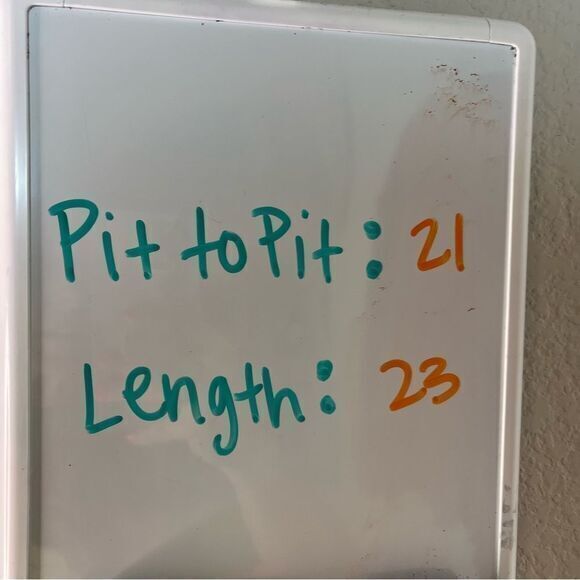 Pit to Pit: 21
Length: 23